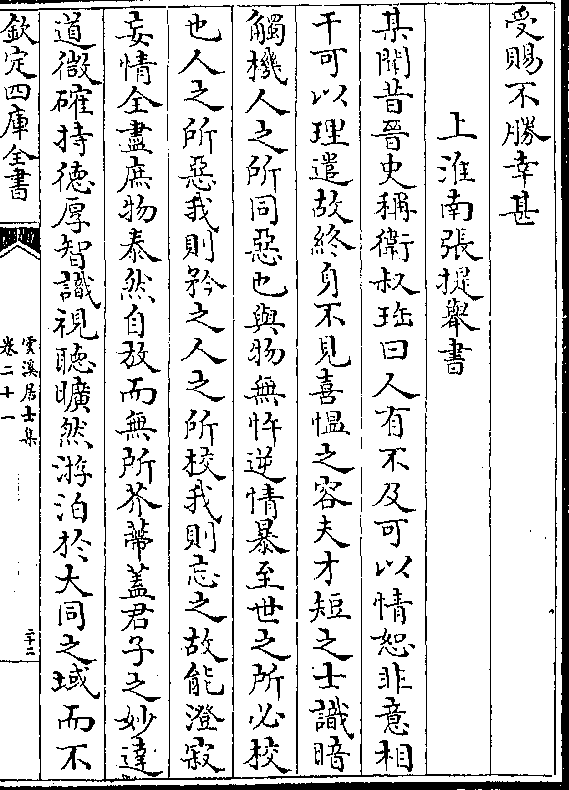 受賜不勝幸甚
上淮南張提舉書
某聞昔晉史稱衛叔珤曰人有不及可以情恕非意相
干可以理遣故終身不見喜愠之容夫才短之士識暗
觸機人之所同惡也與物無忤逆情暴至世之所必校
也人之所惡我則矜之人之所校我則忘之故能澄寂
妄情全盡庶物泰然自放而無所芥蔕蓋君子之妙達
道微確持徳厚智識視聽曠然游泊於大同之域而不
欽定四庫全書
雲溪居士集
卷二十一
二十二